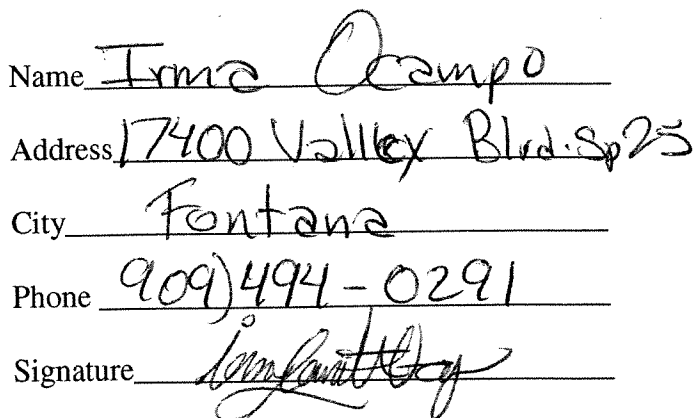 Name Irma Ocampo
Address 17400 Valley Blvd. Sp 25
City Fontana
Phone 909)494-0291
Signature